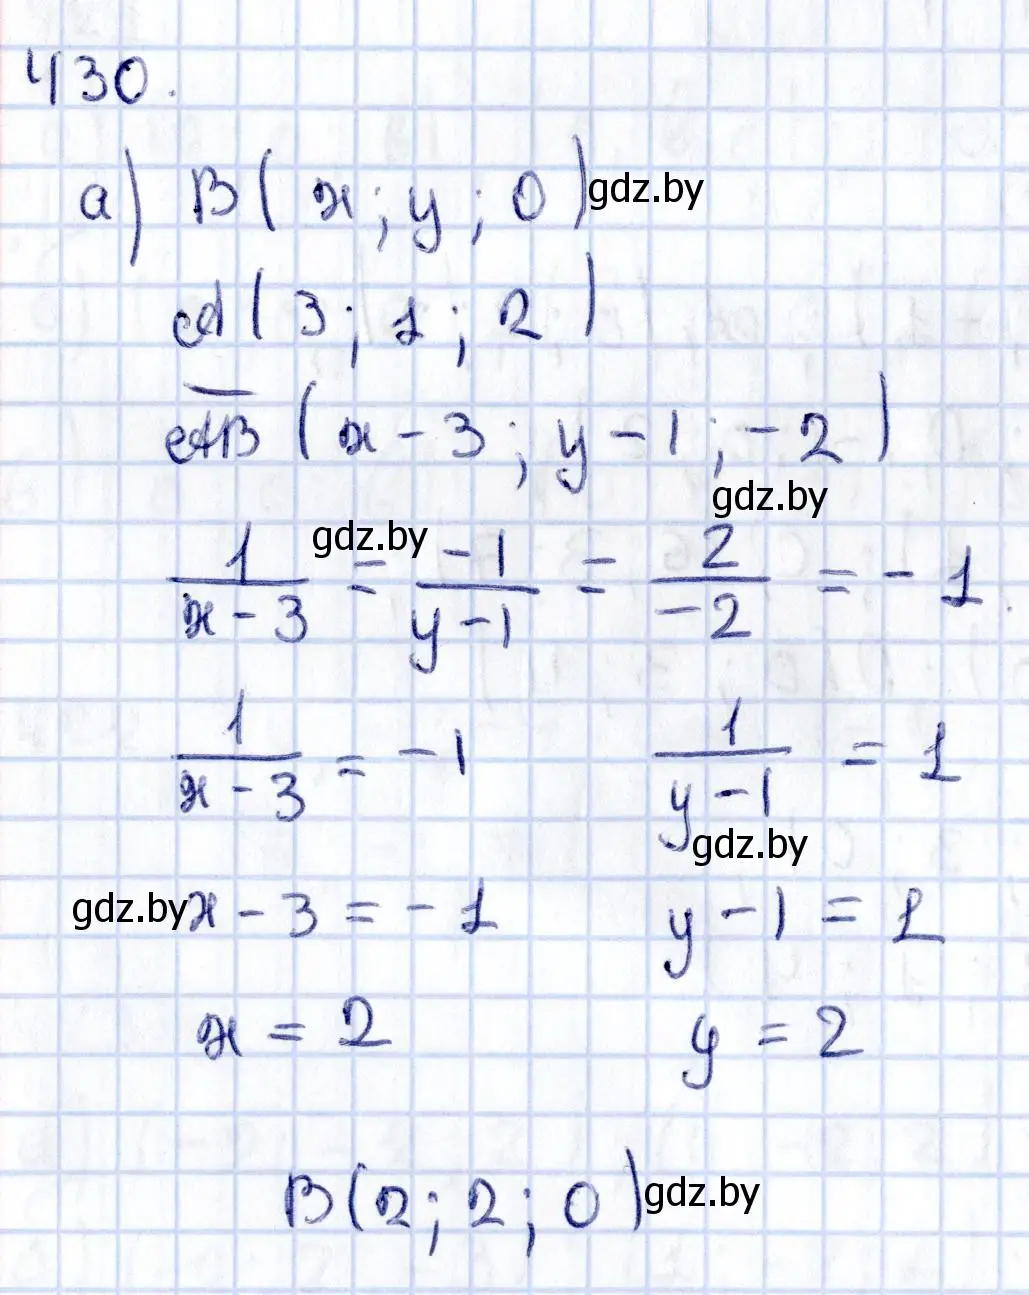 430.
а) B(x; y; 0) gdz.by
A(3; 1; 2)
AB (x-3; y-1; -2)
gdz.by
gdz.by
1/(x-3) = -1/(y-1) = 2/-2 = -1.
1/(x-3) = -1 1/(y-1) = 1
gdz.by
gdz.by x-3 = -1 y-1 = 1
x = 2 y = 2
B(2; 2; 0) gdz.by